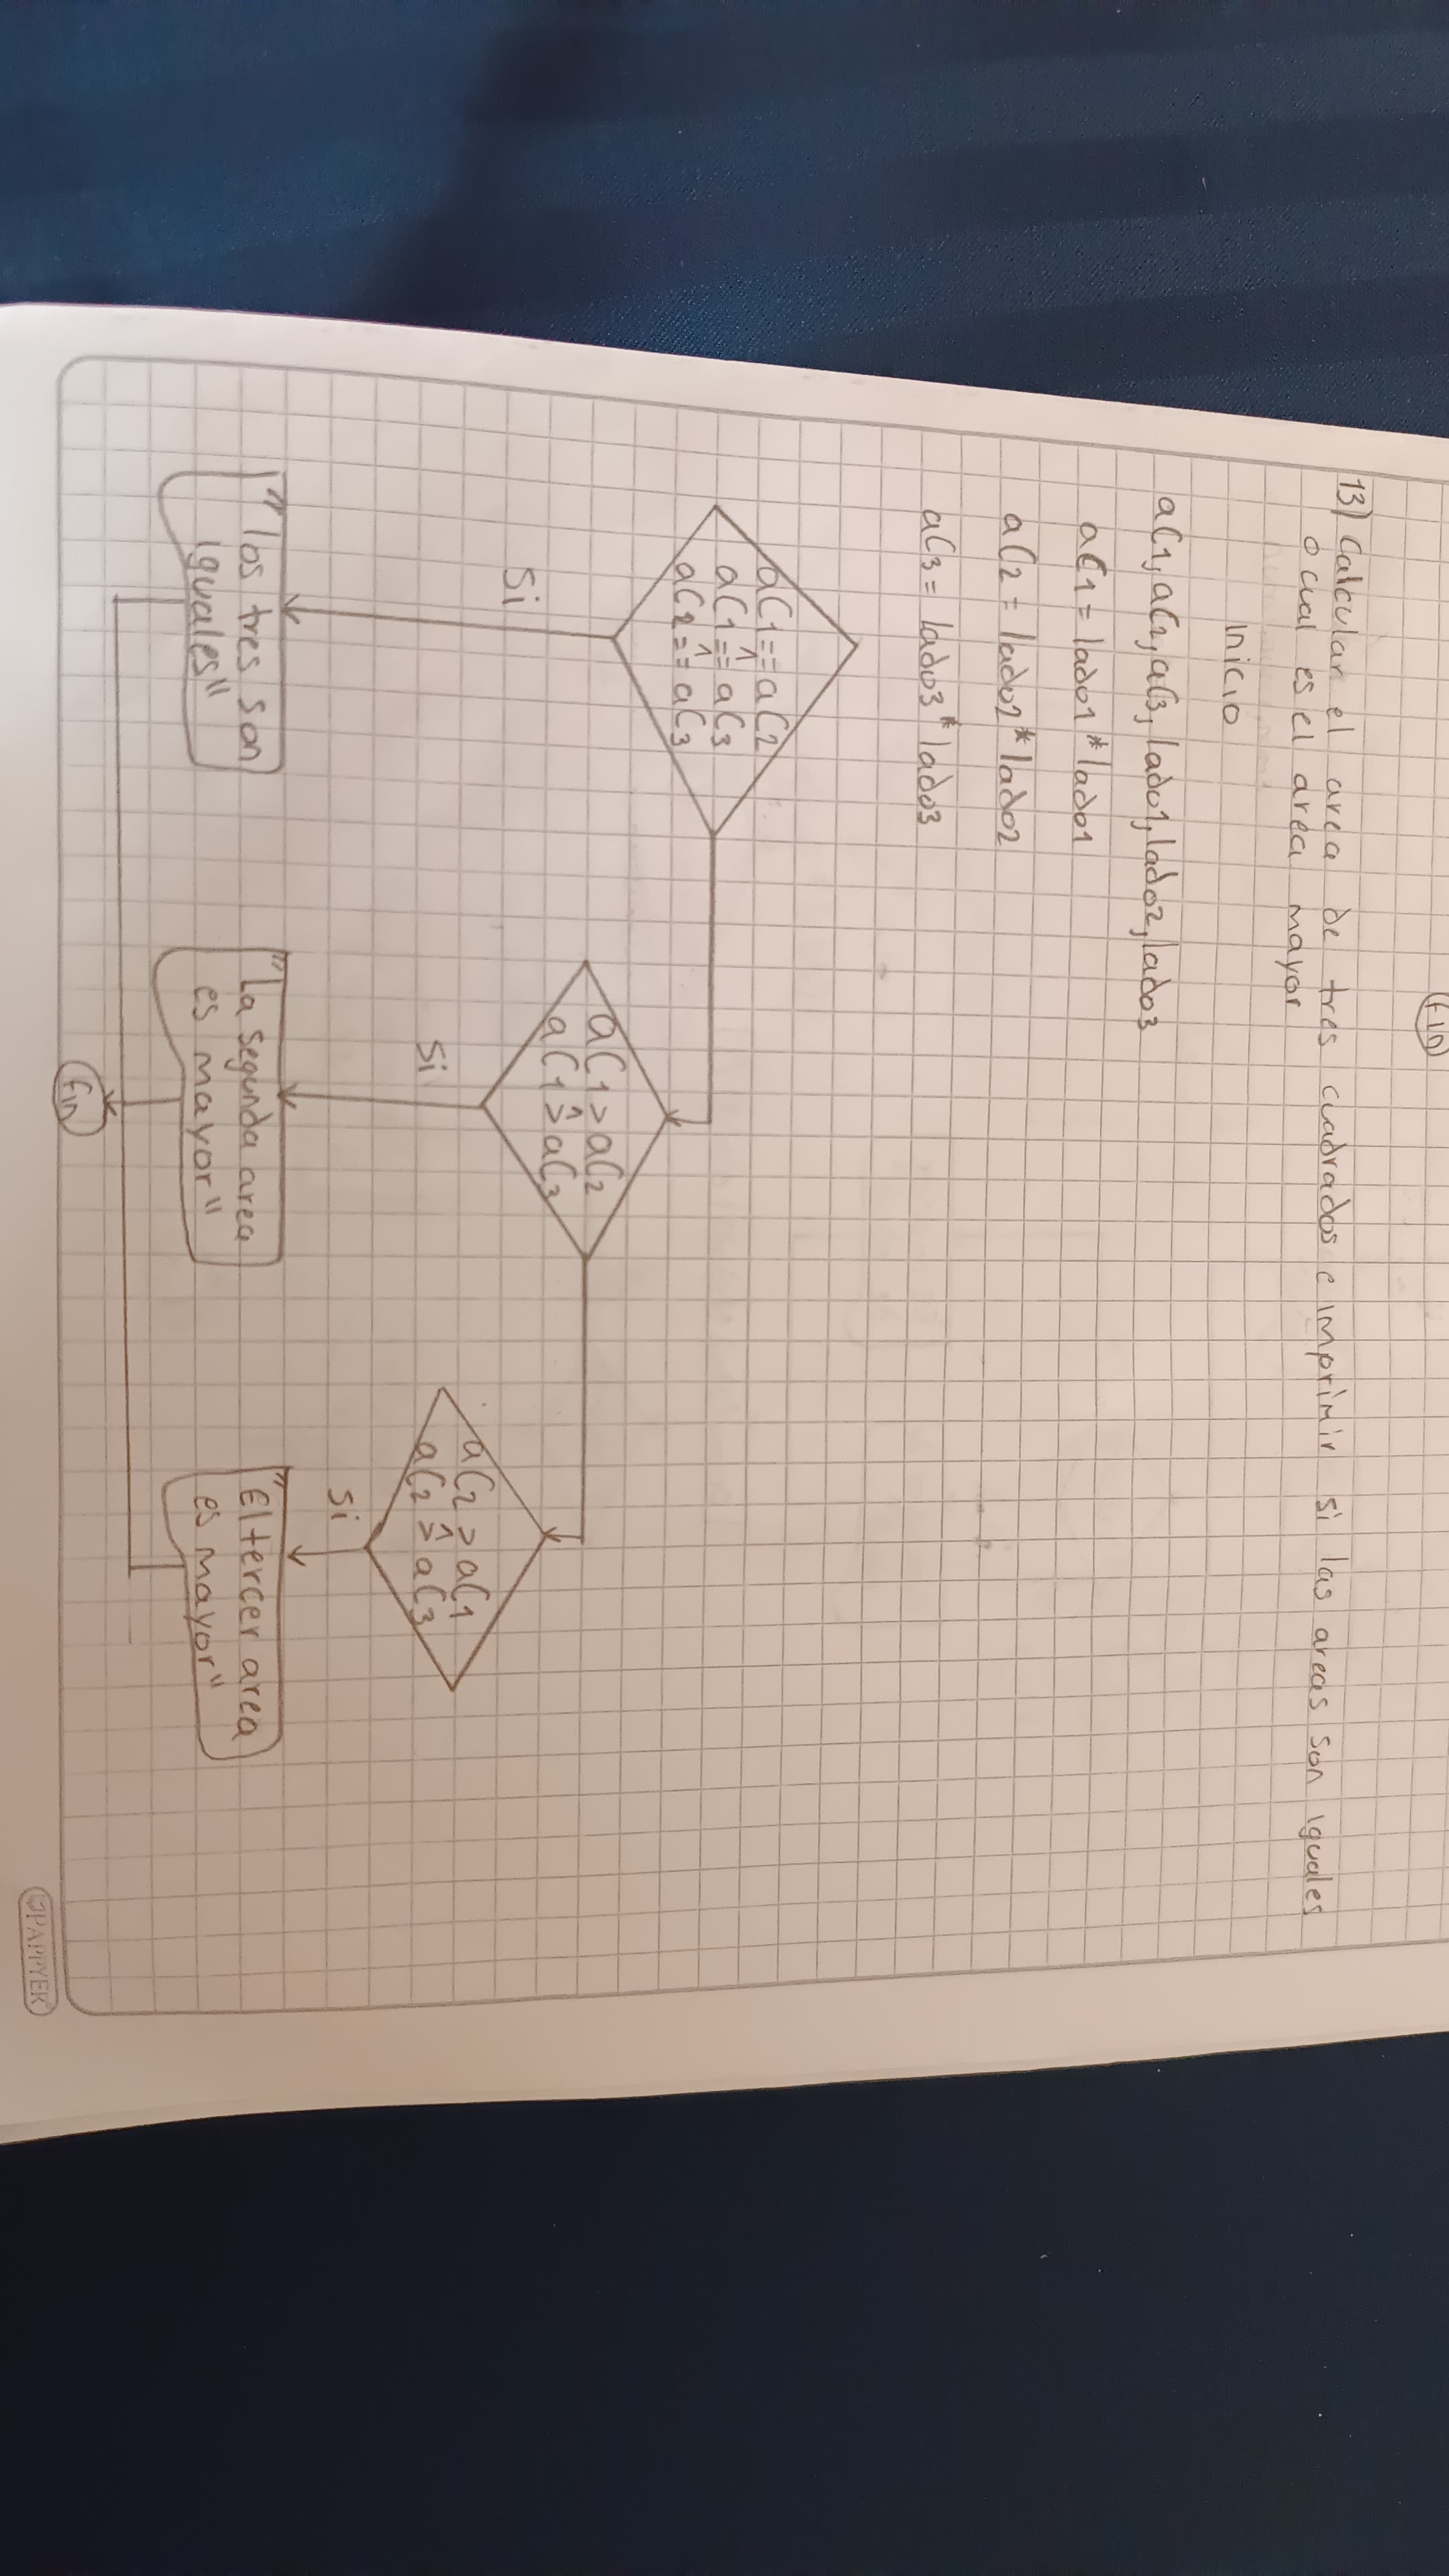 fin
13) Calcular el area de tres cuadrados e imprimir si las areas son iguales
o cual es el area mayor
Inicio
aC1, aC2, aC3, lado1, lado2, lado3
aC1 = lado1 * lado1
aC2 = lado2 * lado2
aC3 = lado3 * lado3
aC1 == aC2
^
aC1 == aC3
^
aC2 == aC3
Si
"los tres son
iguales"
aC1 > aC2
^
aC1 > aC3
Si
"La segunda area
es mayor"
aC2 > aC1
^
aC2 > aC3
Si
"El tercer area
es mayor"
fin
PAPPYER